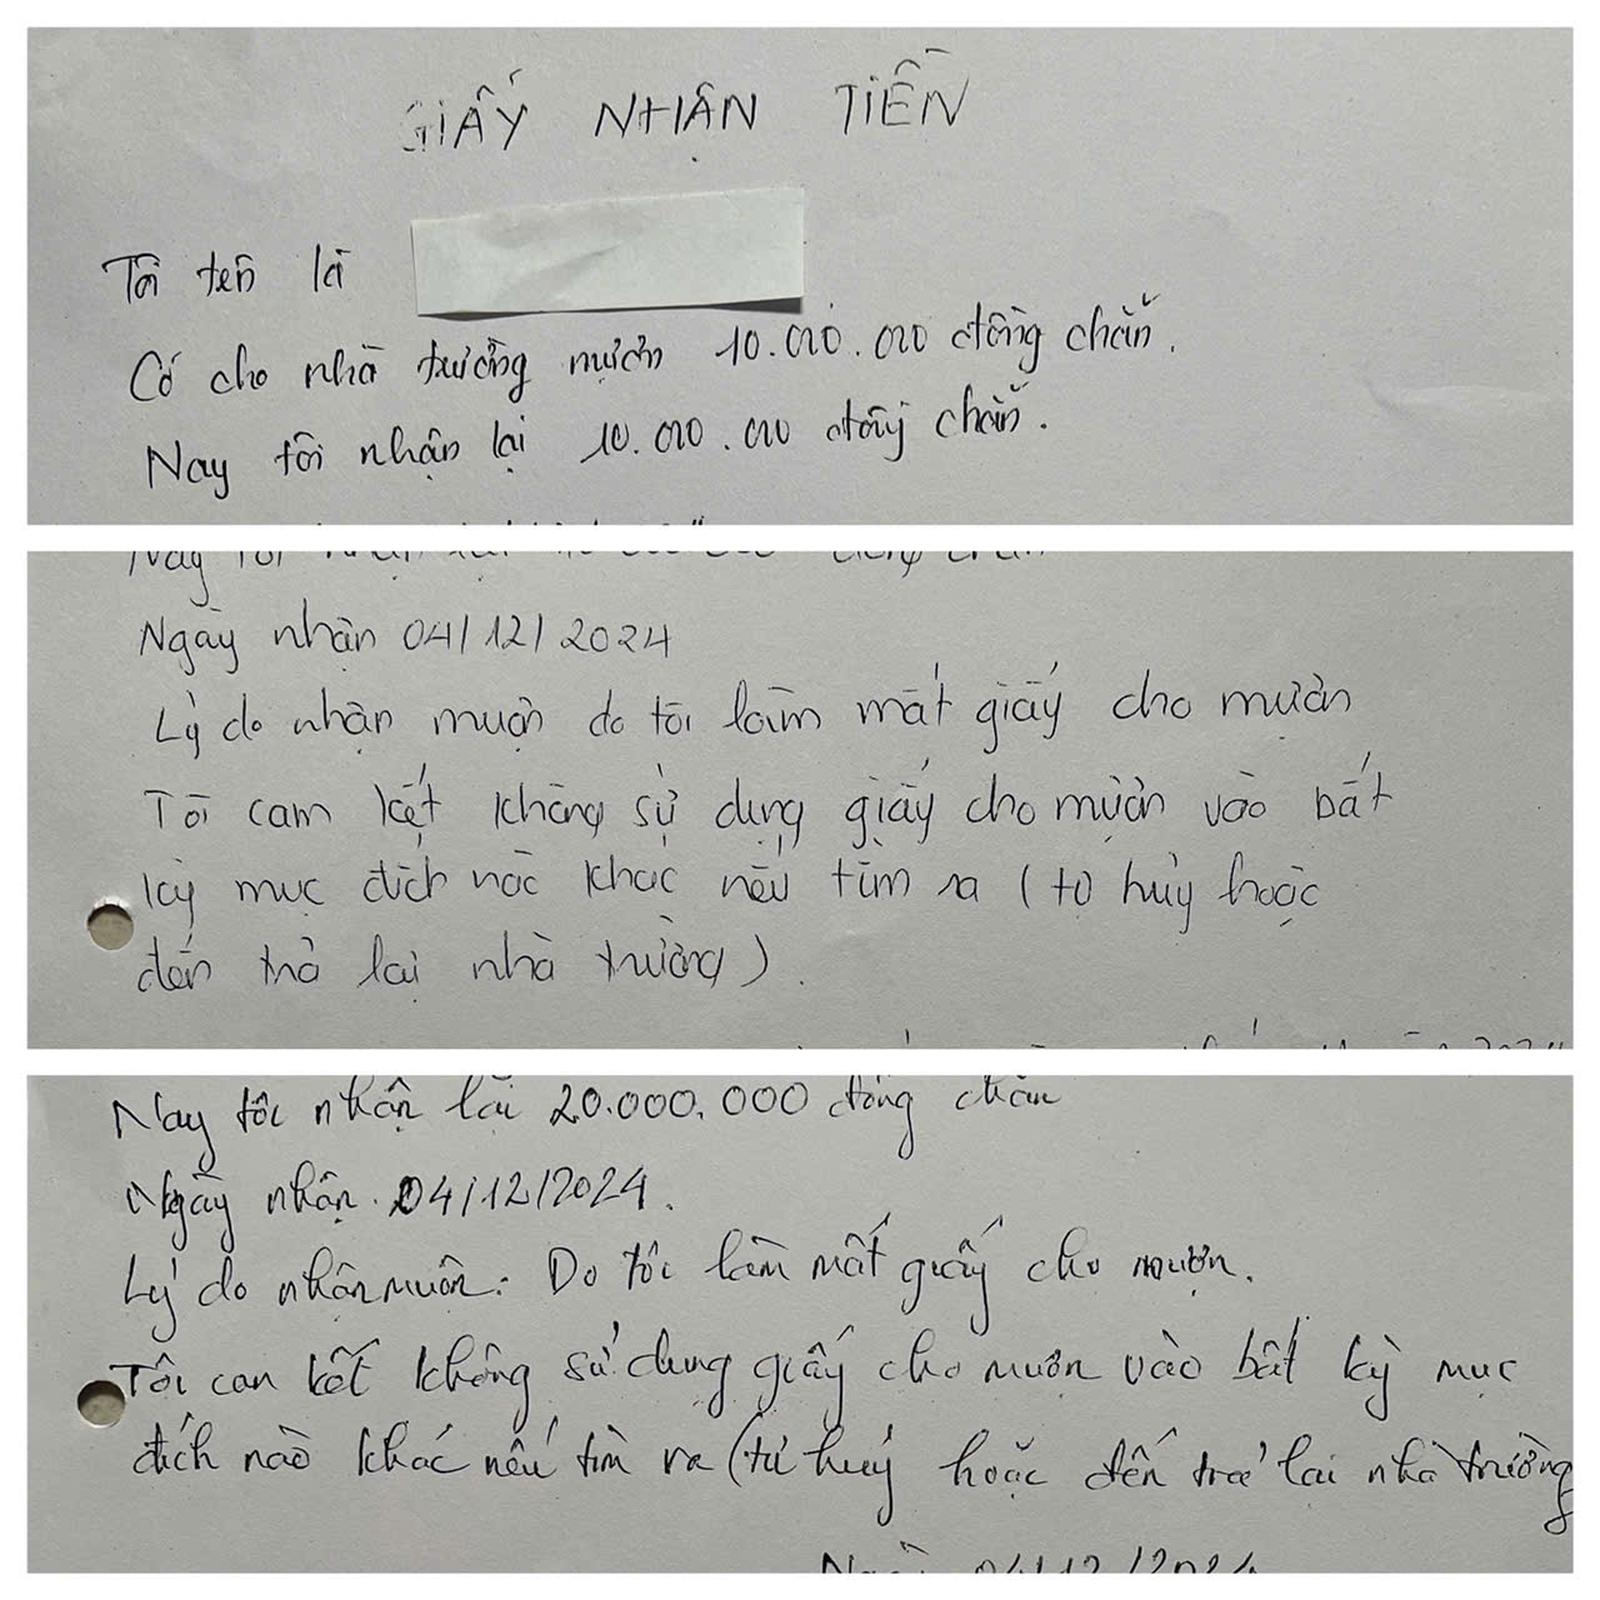 GIẤY NHẬN TIỀN
Tôi tên là
Có cho nhà trường mượn 10.000.000 đồng chẵn.
Nay tôi nhận lại 10.000.000 đồng chẵn.
Nay tôi nhận lại 10 000 000 đồng chẵn
Ngày nhận 04/12/2024
Lý do nhận muộn do tôi làm mất giấy cho mượn
Tôi cam kết không sử dụng giấy cho mượn vào bất
kỳ mục đích nào khác nếu tìm ra (tự hủy hoặc
đến trả lại nhà trường).
Nay tôi nhận lại 20.000.000 đồng chẵn
Ngày nhận. 04/12/2024.
Lý do nhận muộn: Do tôi làm mất giấy cho mượn.
Tôi can kết không sử dụng giấy cho mượn vào bất kỳ mục
đích nào khác nếu tìm ra (tự huỷ hoặc đến trả lại nhà trường
Ngày 04/12/2024